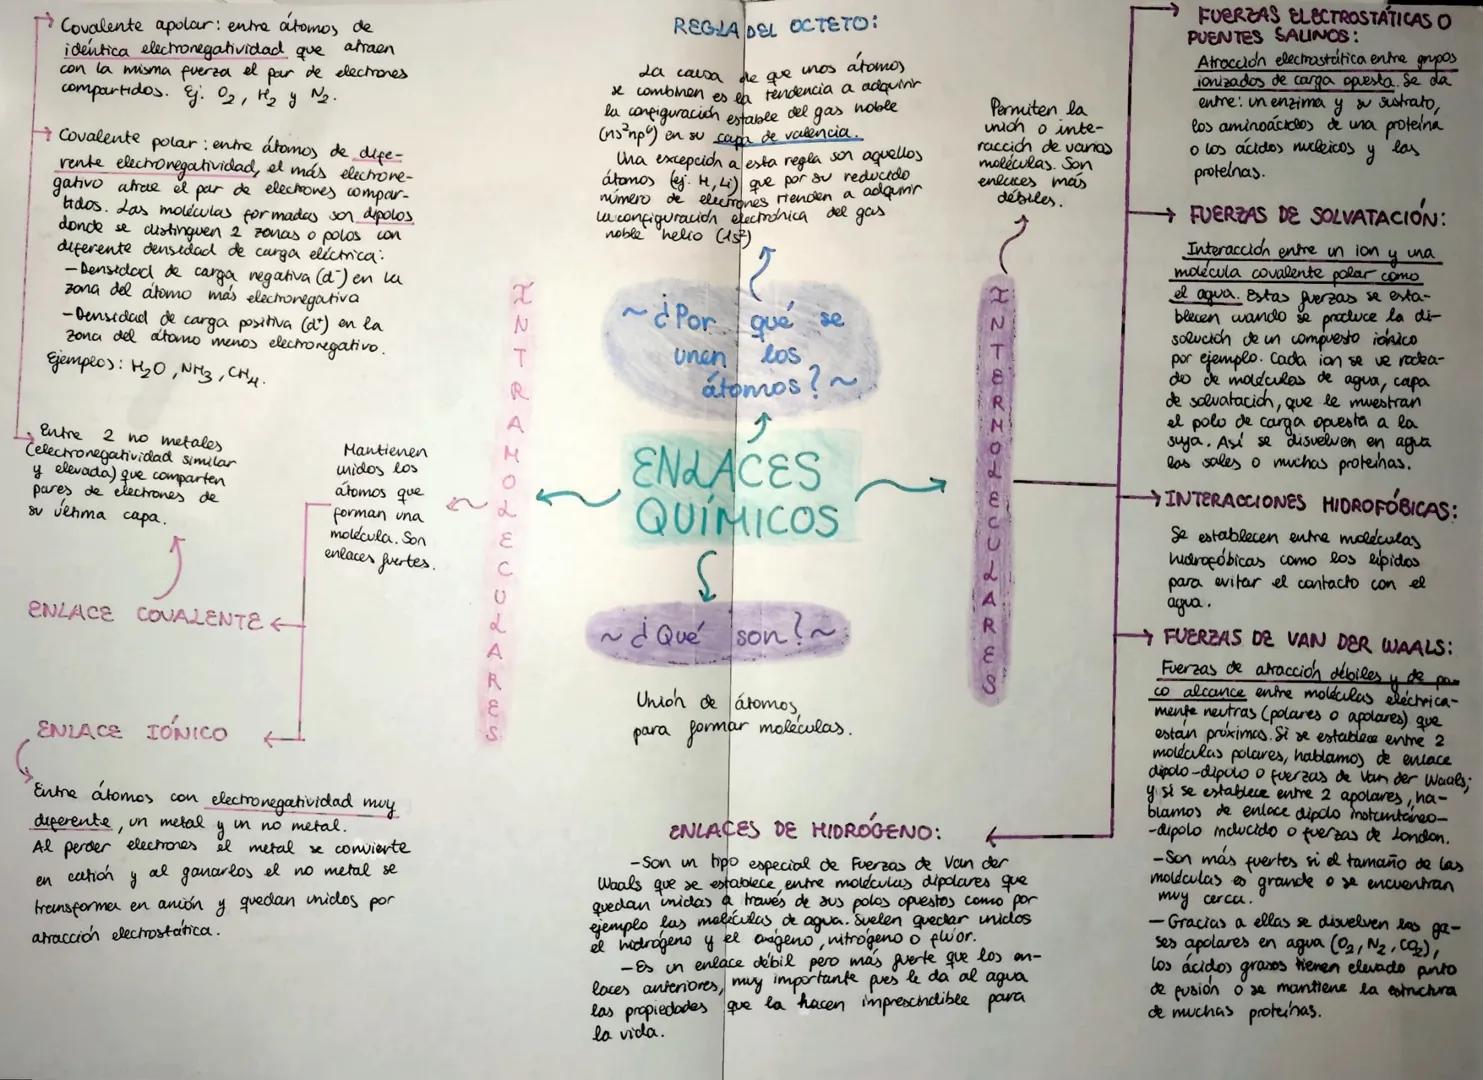 Covalente apolar: entre átomos de
idéntica electronegatividad que atraen
con la misma fuerza el par de electrones
compartidos. Ej. O₂, H₂ y N₂.
Covalente polar: entre átomos de dife-
rente electronegatividad, el más electrone-
gativo atrae el par de electrones compar-
tidos. Las moléculas formadas son dipolos
donde se distinguen 2 zonas o polos con
diferente densidad de carga eléctrica:
-Densidad de carga negativa (d⁻) en la
zona del átomo más electronegativa
-Densidad de carga positiva (d⁺) en la
zona del átomo menos electronegativo.
Ejemplos: H₂O, NH₃, CH₄.
Entre 2 no metales
(electronegatividad similar
y elevada) que comparten
pares de electrones de
su última capa.
ENLACE COVALENTE
Mantienen
unidos los
átomos que
forman una
molécula. Son
enlaces fuertes.
ENLACE IÓNICO
Entre átomos con electronegatividad muy
diferente, un metal y un no metal.
Al perder electrones el metal se convierte
en catión y al ganarlos el no metal se
transforma en anión y quedan unidos por
atracción electrostática.
INTRAMOLECULARES
REGLA DEL OCTETO:
La causa de que unos átomos
se combinen es la tendencia a adquirir
la configuración estable del gas noble
(ns²np⁶) en su capa de valencia.
Una excepción a esta regla son aquellos
átomos (ej. H, Li) que por su reducido
número de electrones tienden a adquirir
la configuración electrónica del gas
noble helio (1s²)
~¿Por qué se
unen los
átomos?~
ENLACES
QUÍMICOS
~¿Qué son?~
Unión de átomos
para formar moléculas.
ENLACES DE HIDRÓGENO:
-Son un tipo especial de Fuerzas de Van der
Waals que se establece entre moléculas dipolares que
quedan unidas a través de sus polos opuestos como por
ejemplo las moléculas de agua. Suelen quedar unidos
el hidrógeno y el oxígeno, nitrógeno o flúor.
-Es un enlace débil pero más fuerte que los en-
laces anteriores, muy importante pues le da al agua
las propiedades que la hacen imprescindible para
la vida.
INTERMOLECULARES
Permiten la
unión o inte-
racción de varias
moléculas. Son
enlaces más
débiles.
FUERZAS ELECTROSTÁTICAS O
PUENTES SALINOS:
Atracción electrostática entre grupos
ionizados de carga opuesta. Se da
entre: un enzima y su sustrato,
los aminoácidos de una proteína
o los ácidos nucleicos y las
proteínas.
FUERZAS DE SOLVATACIÓN:
Interacción entre un ion y una
molécula covalente polar como
el agua. Estas fuerzas se esta-
blecen cuando se produce la di-
solución de un compuesto iónico
por ejemplo. Cada ion se ve rodea-
do de moléculas de agua, capa
de solvatación, que le muestran
el polo de carga opuesta a la
suya. Así se disuelven en agua
las sales o muchas proteínas.
INTERACCIONES HIDROFÓBICAS:
Se establecen entre moléculas
hidrofóbicas como los lípidos
para evitar el contacto con el
agua.
FUERZAS DE VAN DER WAALS:
Fuerzas de atracción débiles y de po-
co alcance entre moléculas eléctrica-
mente neutras (polares o apolares) que
están próximas. Si se establece entre 2
moléculas polares, hablamos de enlace
dipolo-dipolo o fuerzas de Van der Waals;
y si se establece entre 2 apolares, ha-
blamos de enlace dipolo instantáneo-
-dipolo inducido o fuerzas de London.
-Son más fuertes si el tamaño de las
moléculas es grande o se encuentran
muy cerca.
-Gracias a ellas se disuelven los ga-
ses apolares en agua (O₂, N₂, CO₂),
los ácidos grasos tienen elevado punto
de fusión o se mantiene la estructura
de muchas proteínas.